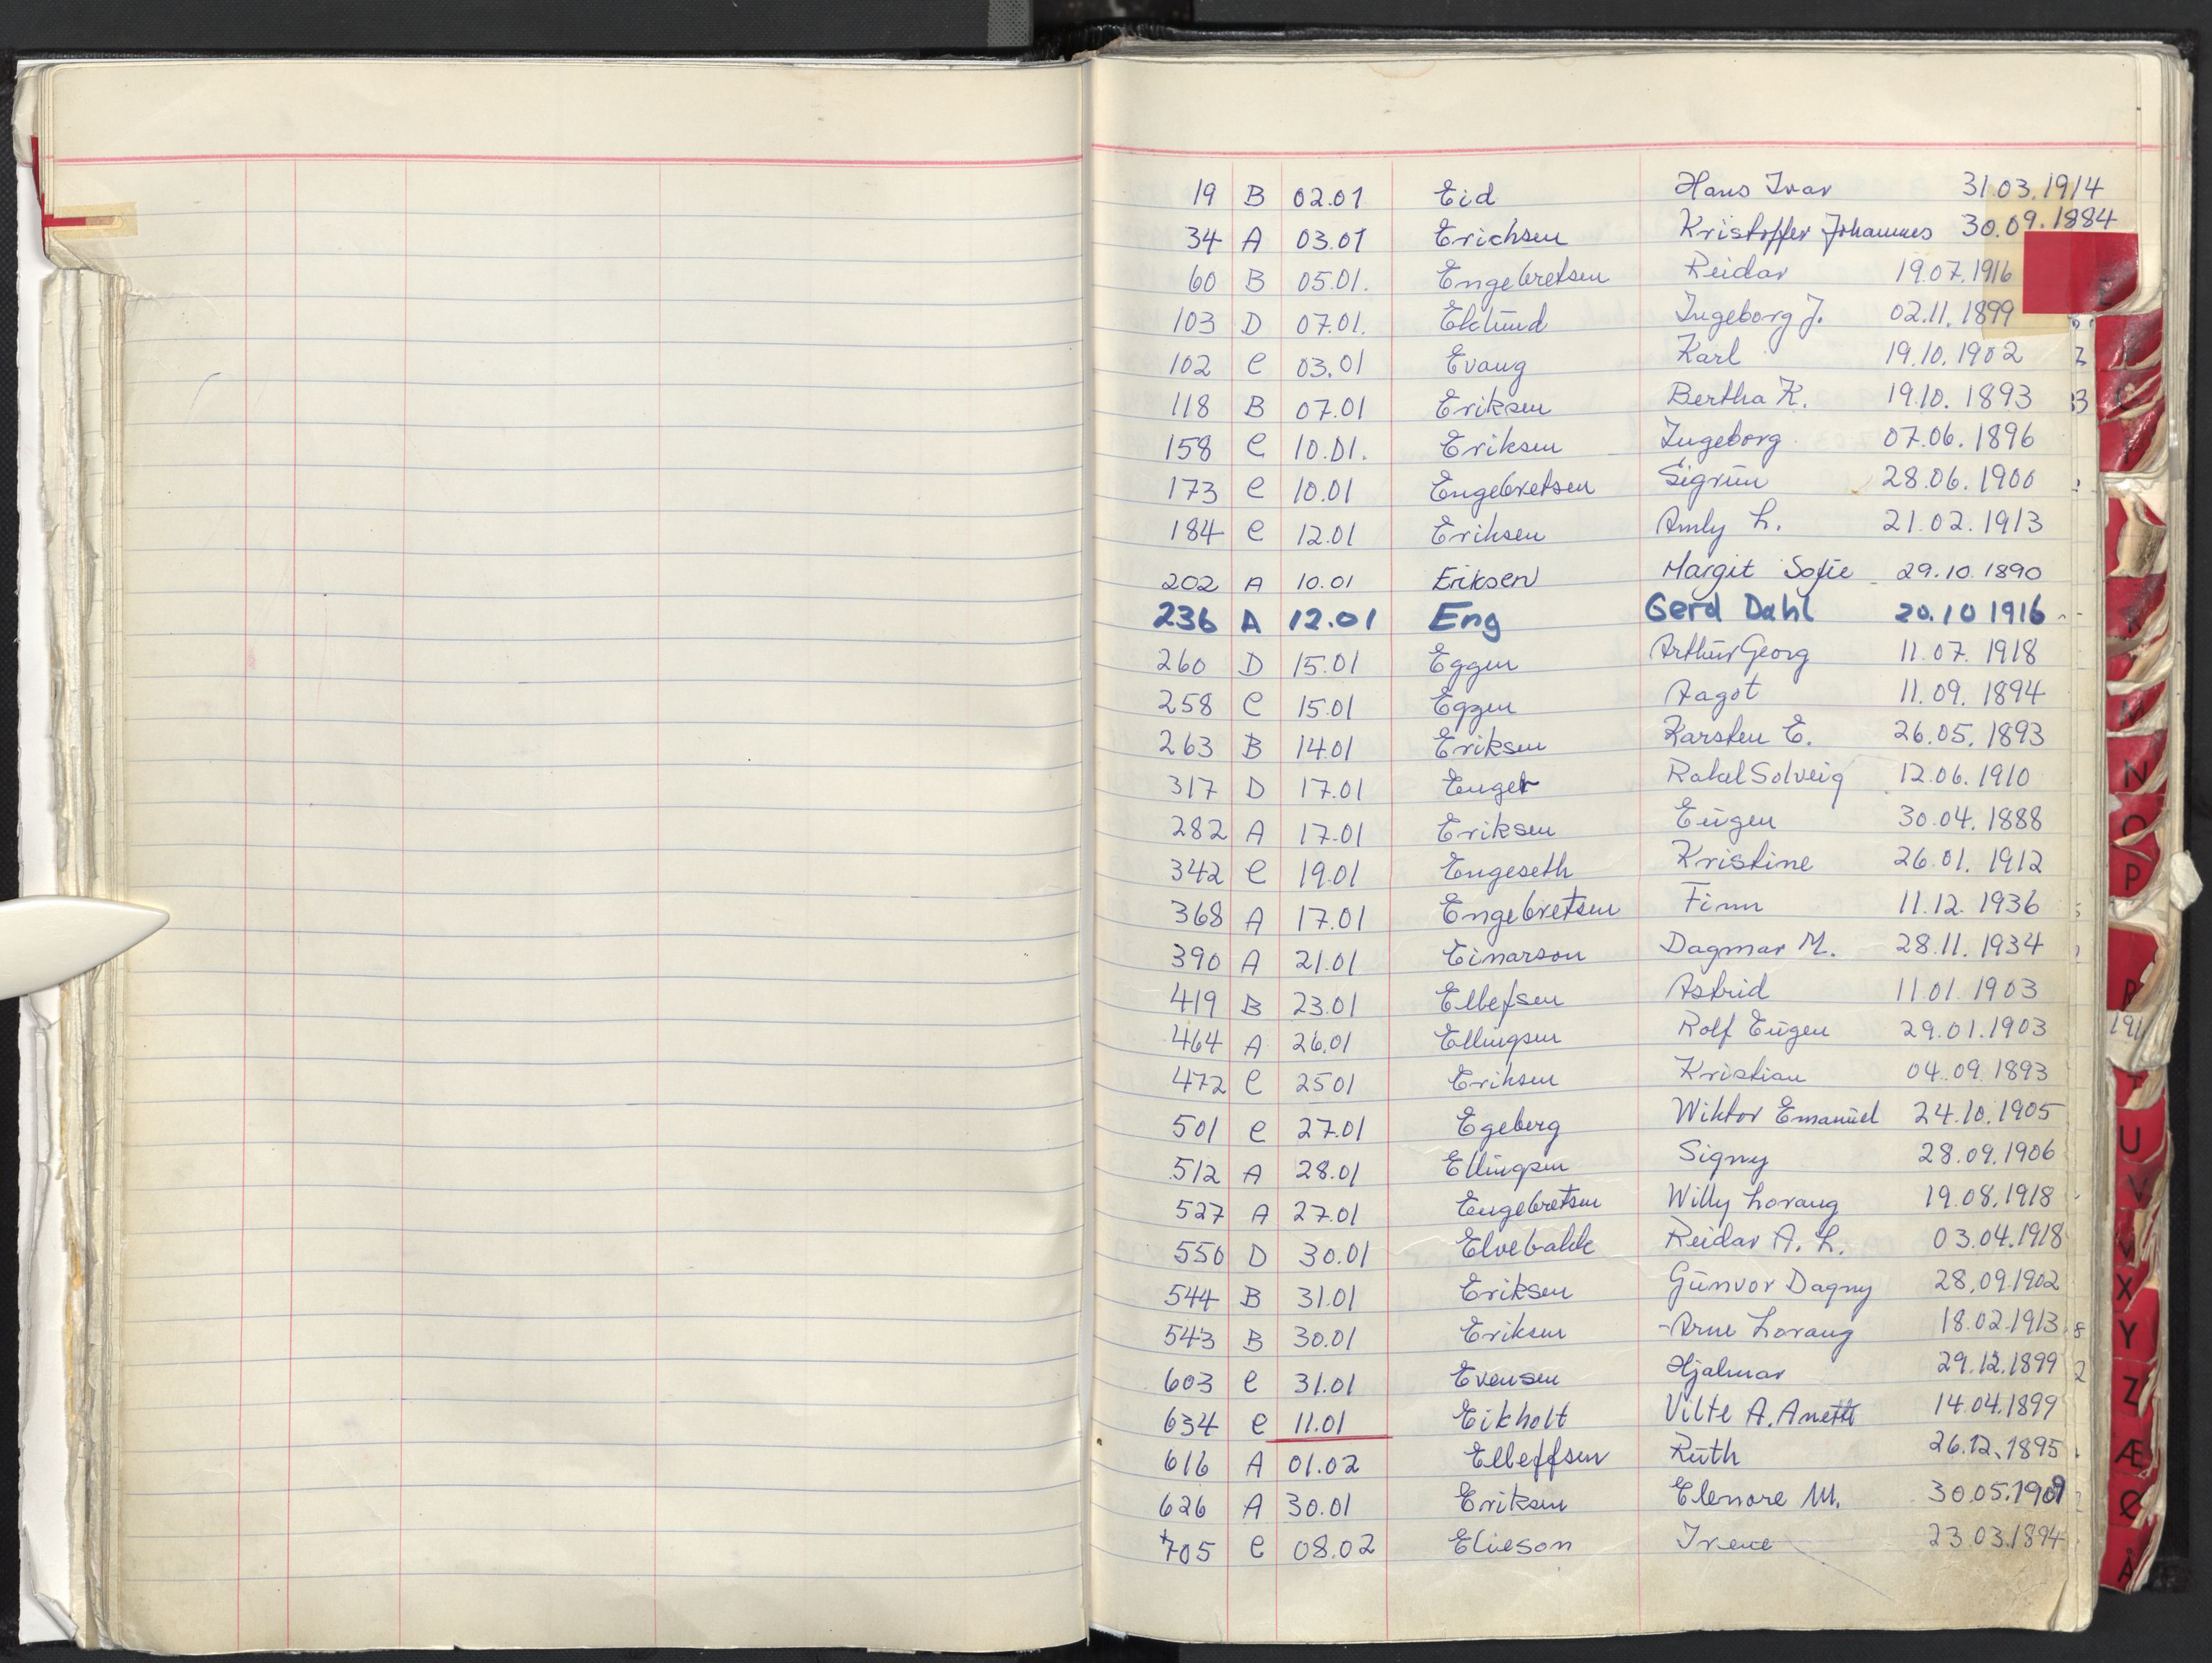 19 B 02.01 Eid Hans Ivar 31.03.1914
34 A 03.01 Erichsen Kristoffer Johannes 30.09.1884
60 B 05.01. Engebretsen Reidar 19.07.1916
103 D 07.01. Eklund Ingeborg J. 02.11.1899
102 C 03.01 Evang Karl 19.10.1902
118 B 07.01 Eriksen Bertha K. 19.10.1893
158 C 10.01. Eriksen Ingeborg 07.06.1896
173 C 10.01 Engebretsen Sigrun 28.06.1900
184 C 12.01 Eriksen Amly L. 21.02.1913
202 A 10.01 Eriksen Margit Sofie 29.10.1890
236 A 12.01 Eng Gerd Dahl 20.10 1916
260 D 15.01 Eggen Arthur Georg 11.07.1918
258 C 15.01 Eggen Aagot 11.09.1894
263 B 14.01 Eriksen Karsten E. 26.05.1893
317 D 17.01 Enger Rakel Solveig 12.06.1910
282 A 17.01 Eriksen Eugen 30.04.1888
342 C 19.01 Engeseth Kristine 26.01.1912
368 A 17.01 Engebretsen Finn 11.12.1936
390 A 21.01 Einarson Dagmar M. 28.11.1934
419 B 23.01 Ellefsen Astrid 11.01.1903
464 A 26.01 Ellingsen Rolf Eugen 29.01.1903
472 C 25 01 Eriksen Kristian 04.09.1893
501 C 27.01 Egeberg Wiktor Emanuel 24.10.1905
512 A 28.01 Ellingsen Signy 28.09.1906
527 A 27.01 Engebretsen Willy Lorang 19.08.1918
550 D 30.01 Elvebakk Reidar A. L. 03.04.1918
544 B 31.01 Eriksen Gunvor Dagny 28.09.1902
543 B 30.01 Eriksen Arne Lorang 18.02.1913
603 C 31.01 Evensen Hjalmar 29.12.1899
634 C 11.01 Eikholt Vilte A. Anett 14.04.1899
616 A 01.02 Elleffsen Ruth 26.12.1895
626 A 30.01 Eriksen Elenore M. 30.05.1909
705 C 08.02 Elieson Irene 23.03.1894
E
C
M
N
O
P
R
191
T
U
V
X
Y
Z
Æ
Å